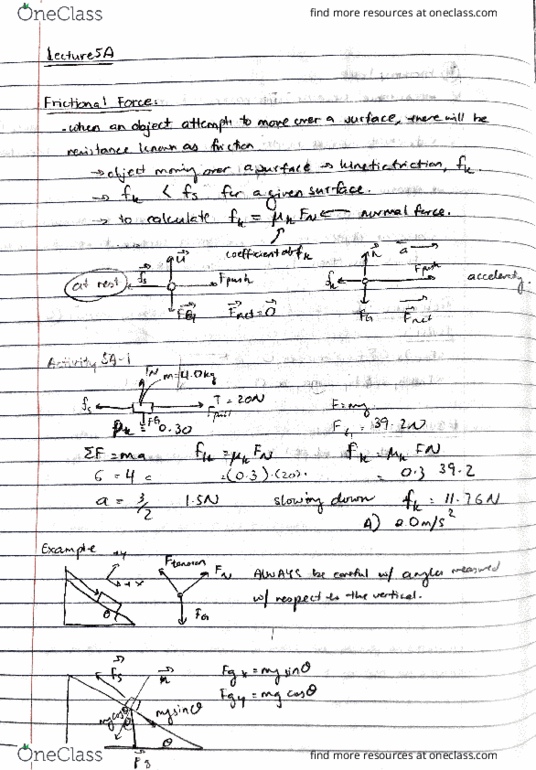 OneClass find more resources at oneclass.com
Lecture 5A
Frictional Force:
- when an object attempts to move over a surface, there will be
resistance known as friction
→ object moving over a surface → kinetic friction, fk.
→ fk < fs for a given surface.
→ to calculate fk = μk FN ← normal force.
coefficient of fk
at rest fs n Fpush FG Fnet = 0
fk n a Fpush FG Fnet
Activity 5A-1
FN m=4.0kg
fs T = 20N FG
μk = 0.30
F=mg
39.2N
ΣF = ma fk = μk FN fk = μk FN
6 = 4 = (0.3)·(20) = 0.3 39.2
a = 3/2 1.5N slowing down fk = 11.76N
A) 2.0m/s²
Example +y
+x θ
Ftension FN FG
ALWAYS be careful w/ angles measured
w/ respect to the vertical.
Fs n
Fgx = mg sinθ
Fgy = mg cosθ
mg cosθ mg sinθ θ
OneClass find more resources at oneclass.com